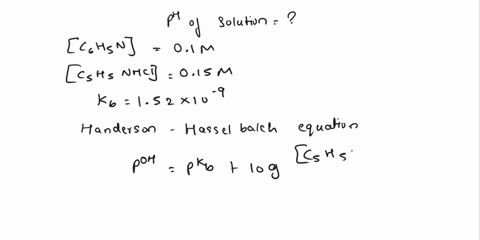 pH of solution = ?
[C6H5N] = 0.1M
[C5H5 NHCl] = 0.15M
Kb = 1.52 × 10^-9
Handerson - Hasselbalch equation
pOH = pKb + log [C5H5